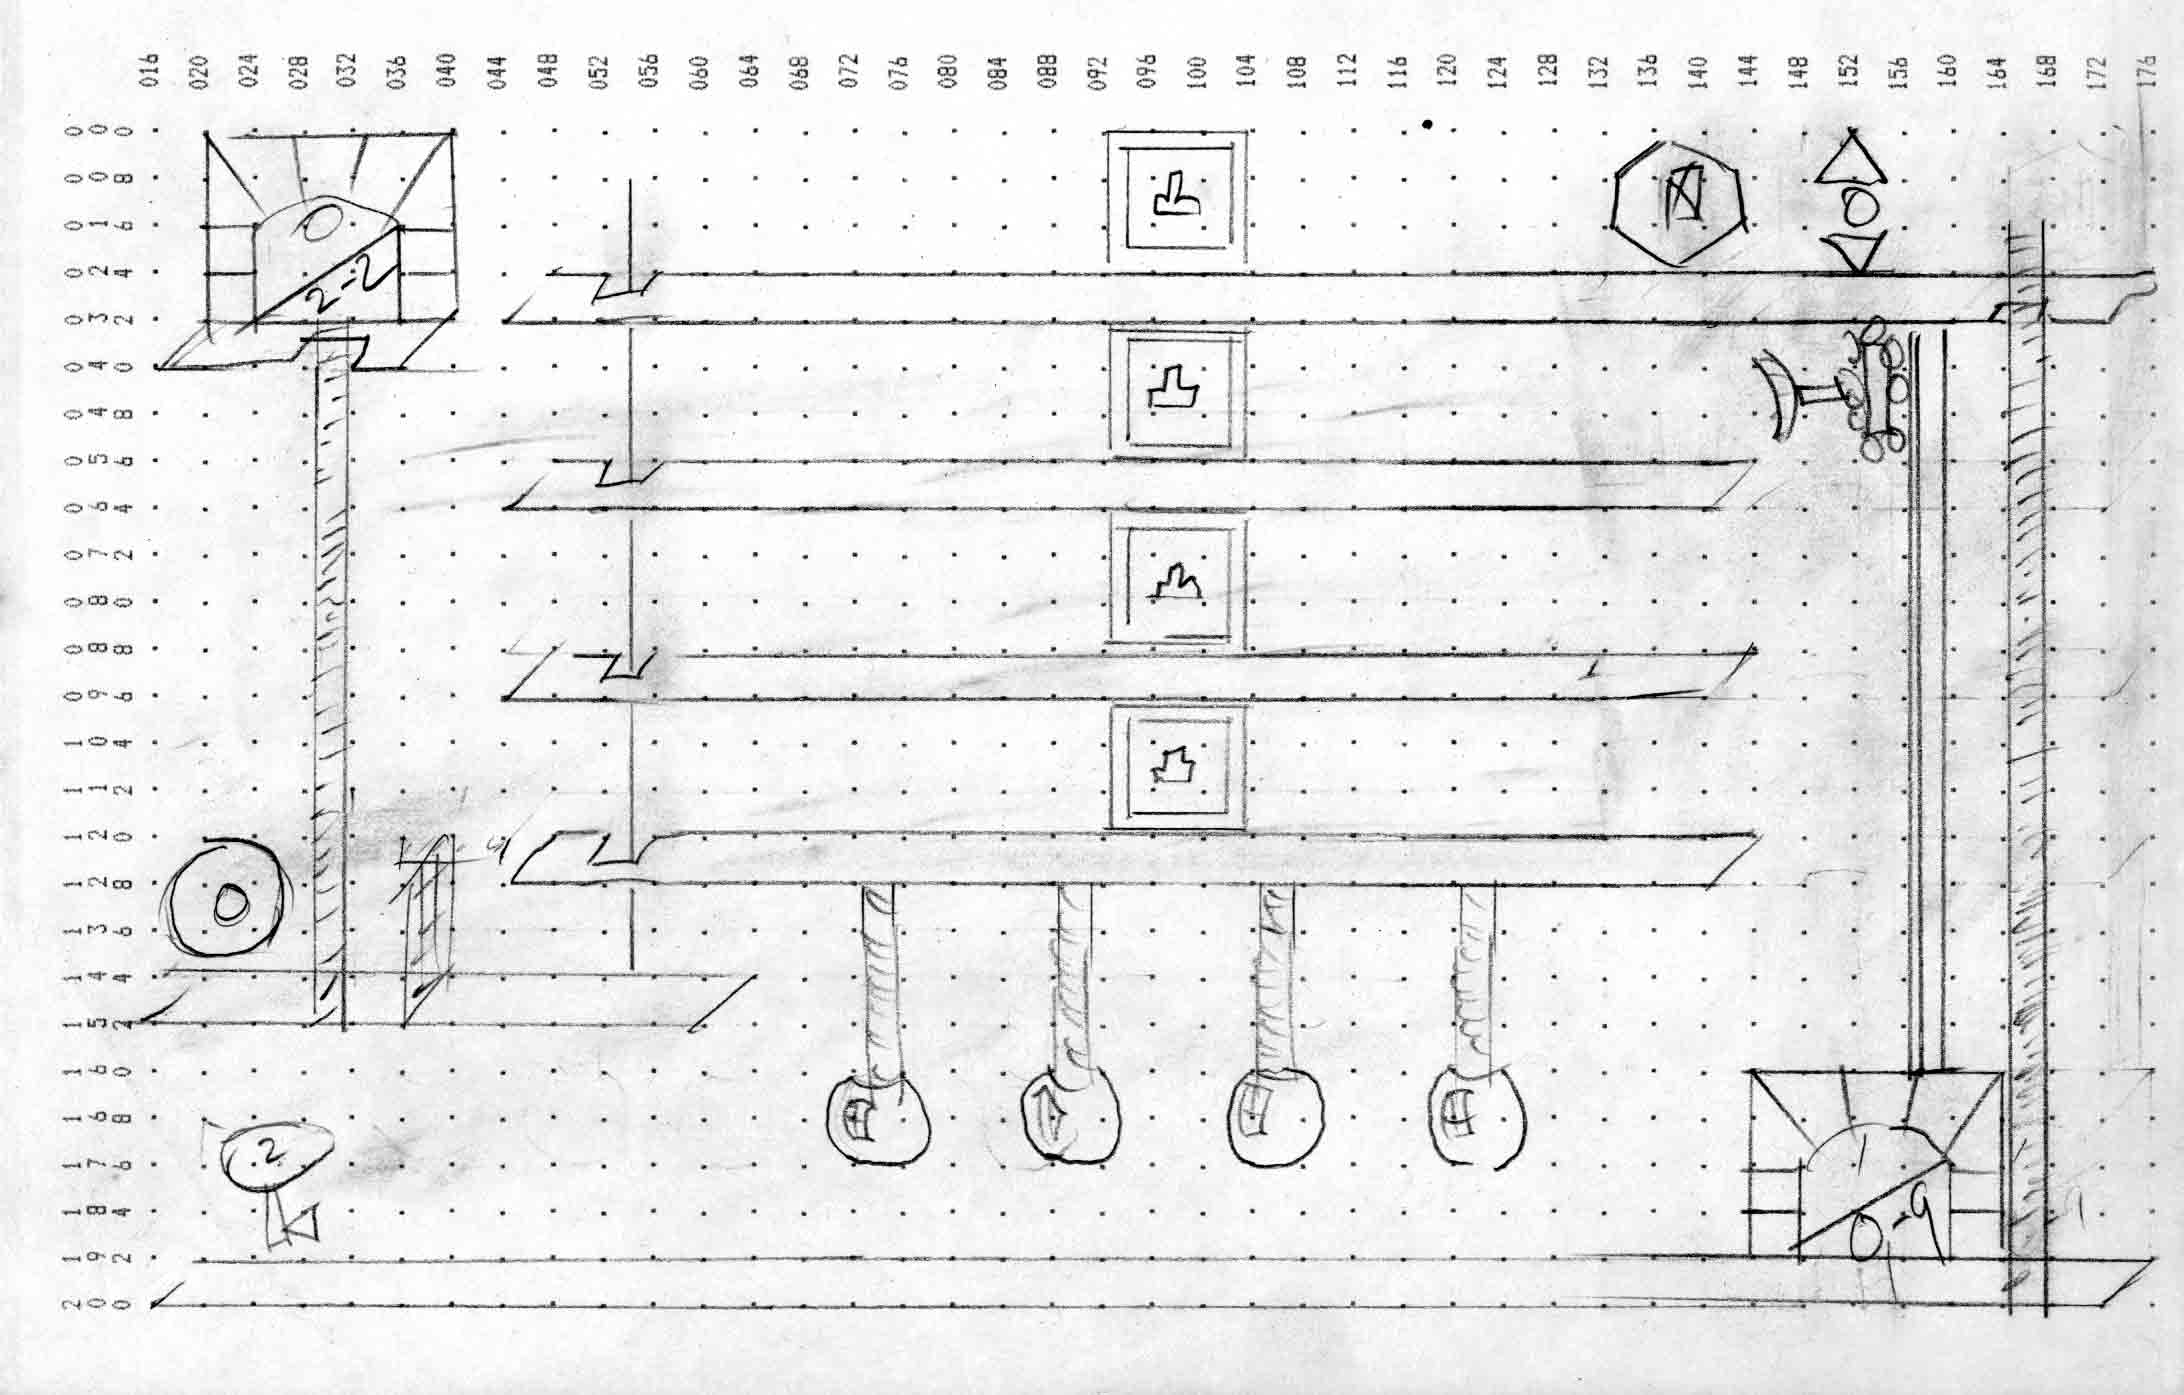 016 020 024 028 032 036 040 044 048 052 056 060 064 068 072 076 080 084 088 092 096 100 104 108 112 116 120 124 128 132 136 140 144 148 152 156 160 164 168 172 176
000
008
016
024
2-2
032
040
048
056
064
072
080
088
096
104
112
120
128
136
144
152
160
168
176
2
184
0-9
192
200